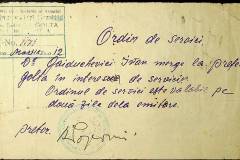 GOLTA
No.
12
Ordin de servici
Dl Gaiduchevici Ivan merge la prefec
Golta în interes de serviciu
Ordinul de servici este valabil pe
două zile dela emitere.
pretor.